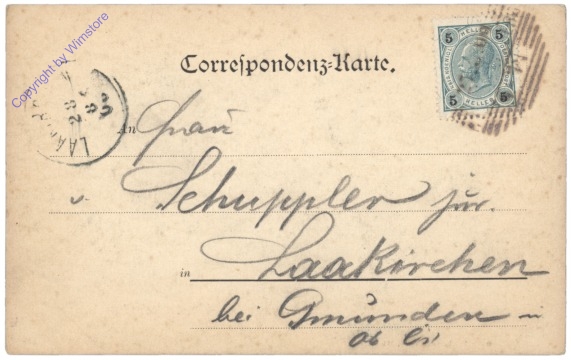 Copyright by Wimstore
Correspondenz-Karte.
5 5
HELLER
5 5
28
8
An Frau
Schuppler jur.
in Laakirchen
bei Gmunden